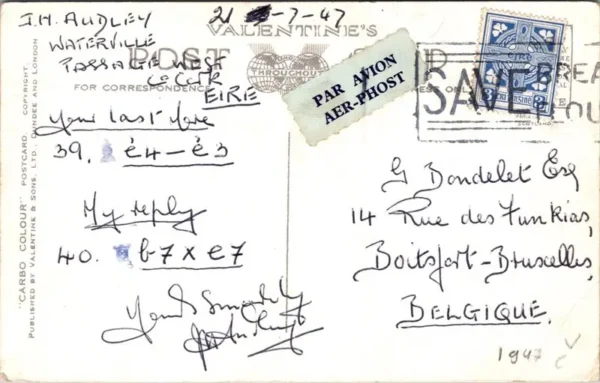 J.H. AUDLEY
WATERVILLE
PASSAGE WEST
Co Cork
EIRE
21-7-47
VALENTINE'S
POST CARD
THROUGHOUT
FOR CORRESPONDENCE
PAR AVION
AER-PHOST
SAVE BREA
Your last move
39. é4-é3
My reply
40. b7 x e7
Yours Sincerely
JH Audley
G Bondelet Esq
14 Rue des Funkias,
Boitsfort-Bruxelles,
BELGIQUE.
1947
"CARBO COLOUR" POSTCARD. COPYRIGHT.
PUBLISHED BY VALENTINE & SONS, LTD. DUNDEE AND LONDON